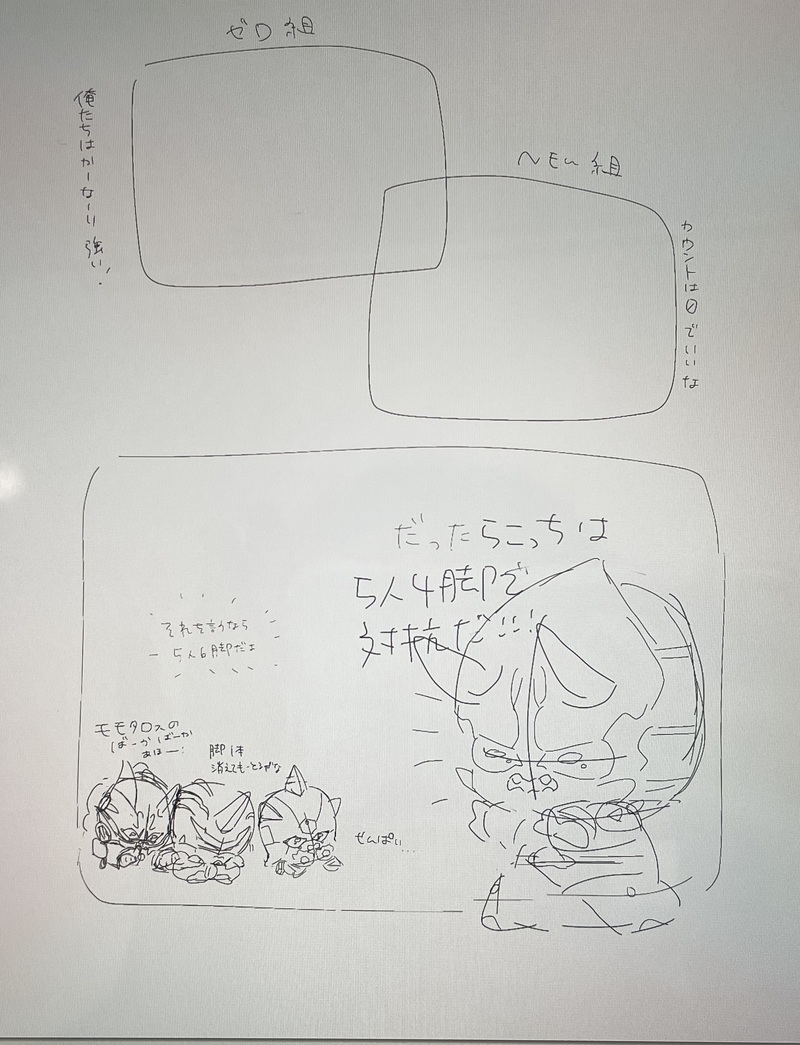 ゼロ組
俺たちはかーなーり強い!
NEW組
カウントは0でいいな
だったらこっちは
5人4脚で
対抗だ!!!
それを言うなら
5人6脚だよ
モモタロスの
ばーかばーか
あほー!
脚1本
消えてもーとるがな
せんぱい…